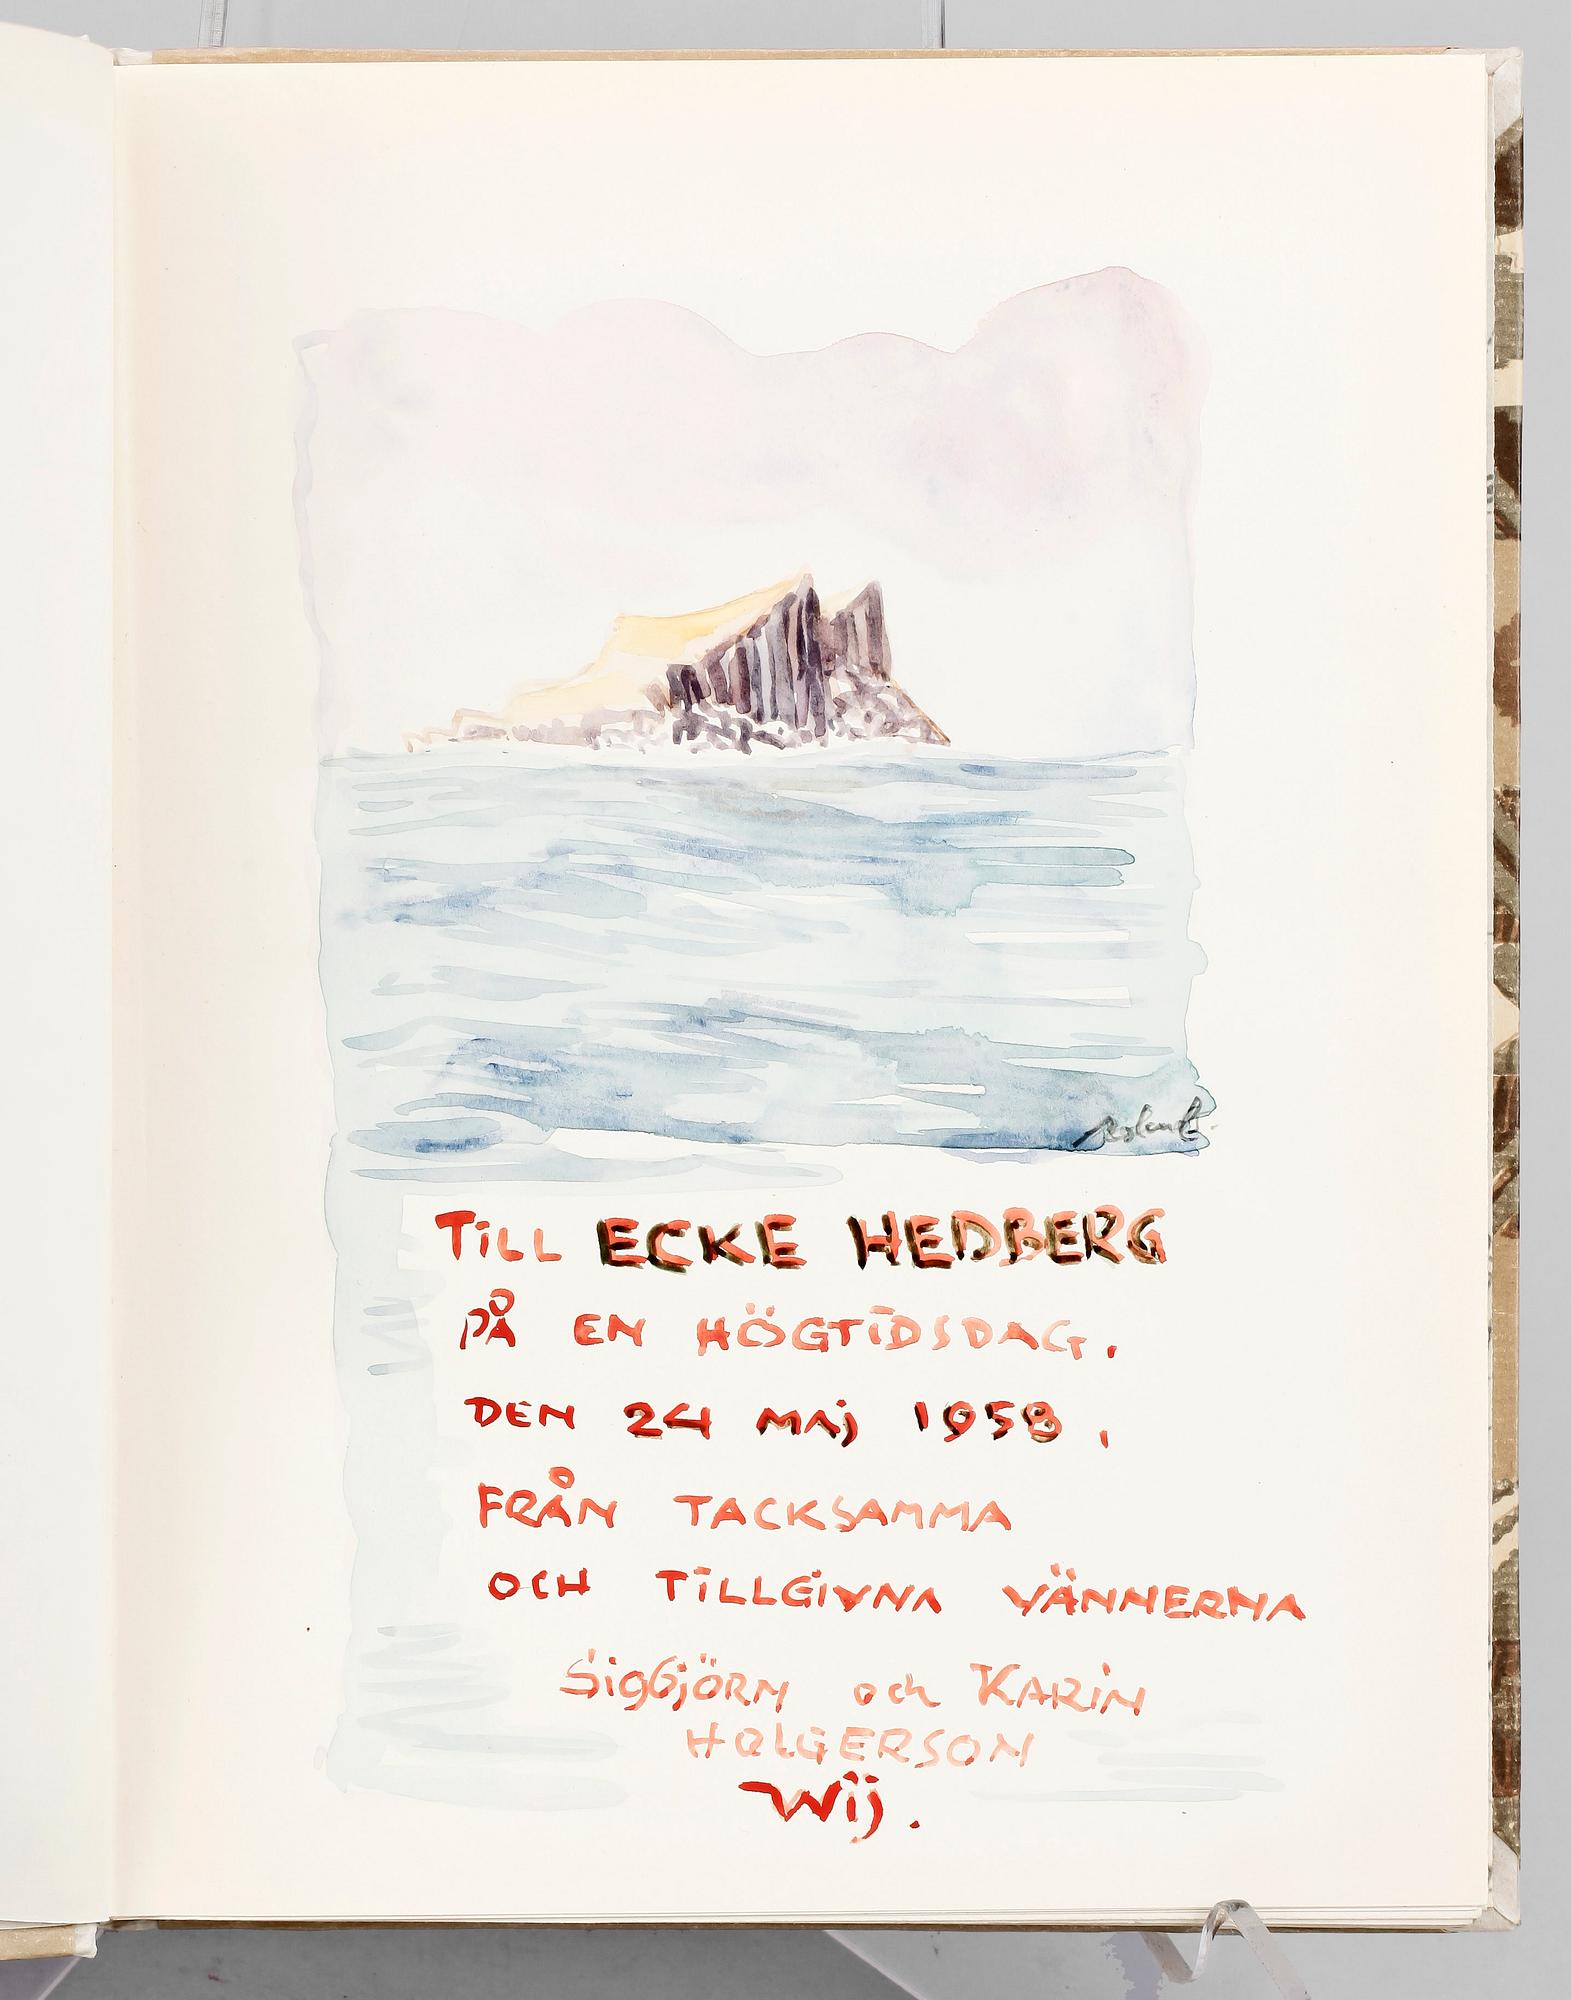 Roland
TiLL ECKE HEDBERG
PÅ EN HÖGTiDSDAG.
DEN 24 MAj 1958.
FRÅN TACKSAMMA
OCH TiLLGiVNA VÄNNERNA
SigbjÖRN och KARiN
HOLGERSON
Wij.